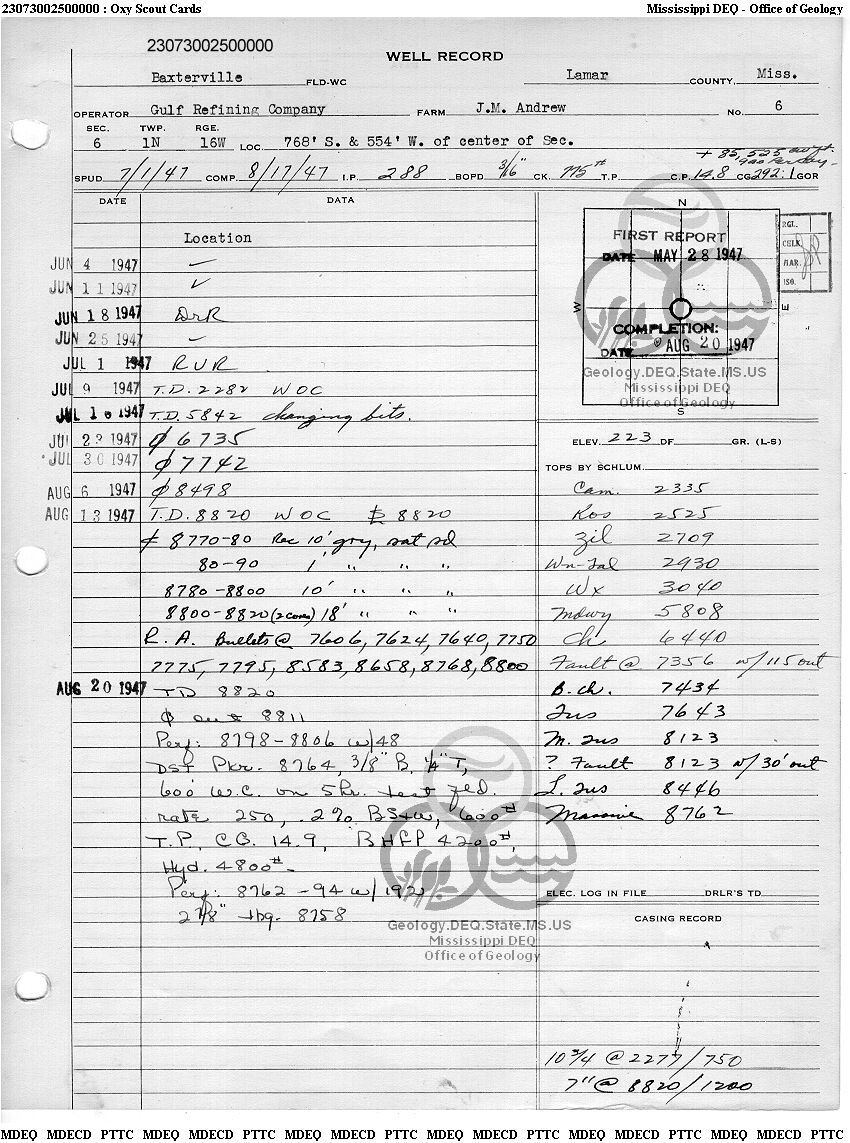 23073002500000 : Oxy Scout Cards Mississippi DEQ - Office of Geology
23073002500000
WELL RECORD
Baxterville FLD-WC Lamar COUNTY, Miss.
OPERATOR Gulf Refining Company FARM J.M. Andrew No. 6
SEC. TWP. RGE.
6 1N 16W LOC. 768' S. & 554' W. of center of Sec.
+ 85,525
SPUD 7/1/47 COMP. 8/17/47 I.P. 288 BOPD 3/16" CK. 775# T.P. C.P. 14.8 CG 292:1 GOR
DATE DATA
Location
JUN 4 1947 —
JUN 11 1947 ✓
JUN 18 1947 DrR
JUN 25 1947 —
JUL 1 1947 RUR
JUL 9 1947 T.D. 2282 WOC
JUL 16 1947 T.D. 5842 changing bits.
JUL 23 1947 6735
JUL 30 1947 7742
AUG 6 1947 8498
AUG 13 1947 T.D. 8820 WOC 8820
8770-80 Rec 10' gry, sat sd
80-90 1' " " "
8780-8800 10' " " "
8800-8820 (2 cores) 18' " " "
R.A. Bullets @ 7606, 7624, 7640, 7750
7775, 7795, 8583, 8658, 8768, 8800
AUG 20 1947 TD 8820
8811
Perf: 8798-8806 w/48
DST Pkr. 8764, 3/8" B, 1/4" T,
600 W.C. on 5 hr. test fld.
rate 250, .2% BS&W, 600#
T.P., CG. 14.9, BHFP 4200#,
Hyd. 4800#
Perf: 8762-94 w/192
2 7/8" tbg. 8758
N
FIRST REPORT
DATE MAY 28 1947
W E
COMPLETION:
DATE AUG 20 1947
S
RGL.
CHLK.
MAR.
ISO.
Geology.DEQ.State.MS.US
Mississippi DEQ
Office of Geology
ELEV. 223 DF GR. (L-S)
TOPS BY SCHLUM.
Cam. 2335
Kos 2525
Zil 2709
Wn-Tal 2930
Wx 3040
Mdwy 5808
Ch 6440
Fault @ 7356 w/115 out
B. ch. 7434
Tus 7643
M. Tus 8123
? Fault 8123 w/30' out
L. Tus 8446
Massive 8762
ELEC. LOG IN FILE DRLR'S TD
CASING RECORD
10 3/4 @ 2277/750
7" @ 8820/1200
Geology.DEQ.State.MS.US
Mississippi DEQ
Office of Geology
MDEQ MDECD PTTC MDEQ MDECD PTTC MDEQ MDECD PTTC MDEQ MDECD PTTC MDEQ MDECD PTTC MDEQ MDECD PTTC